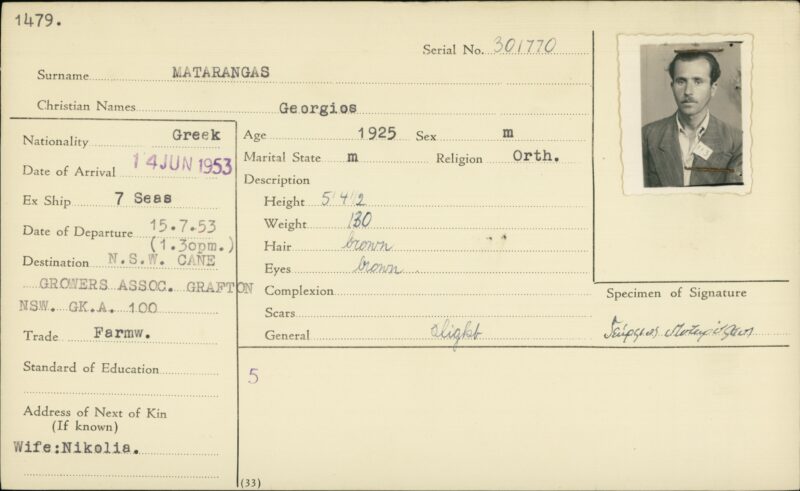 1479.
Serial No. 301770
Surname MATARANGAS
Christian Names Georgios
Nationality Greek
Date of Arrival 14 JUN 1953
Ex Ship 7 Seas
Date of Departure 15.7.53
(1.30pm.)
Destination N.S.W. CANE
GROWERS ASSOC. GRAFTON
NSW. GK.A. 100
Trade Farmw.
Standard of Education
Address of Next of Kin
(If known)
Wife:Nikolia.
Age 1925 Sex m
Marital State m Religion Orth.
Description
Height 5' 4 1/2
Weight 130
Hair brown
Eyes brown
Complexion
Scars
General slight
5
(33)
Specimen of Signature
Γεώργιος